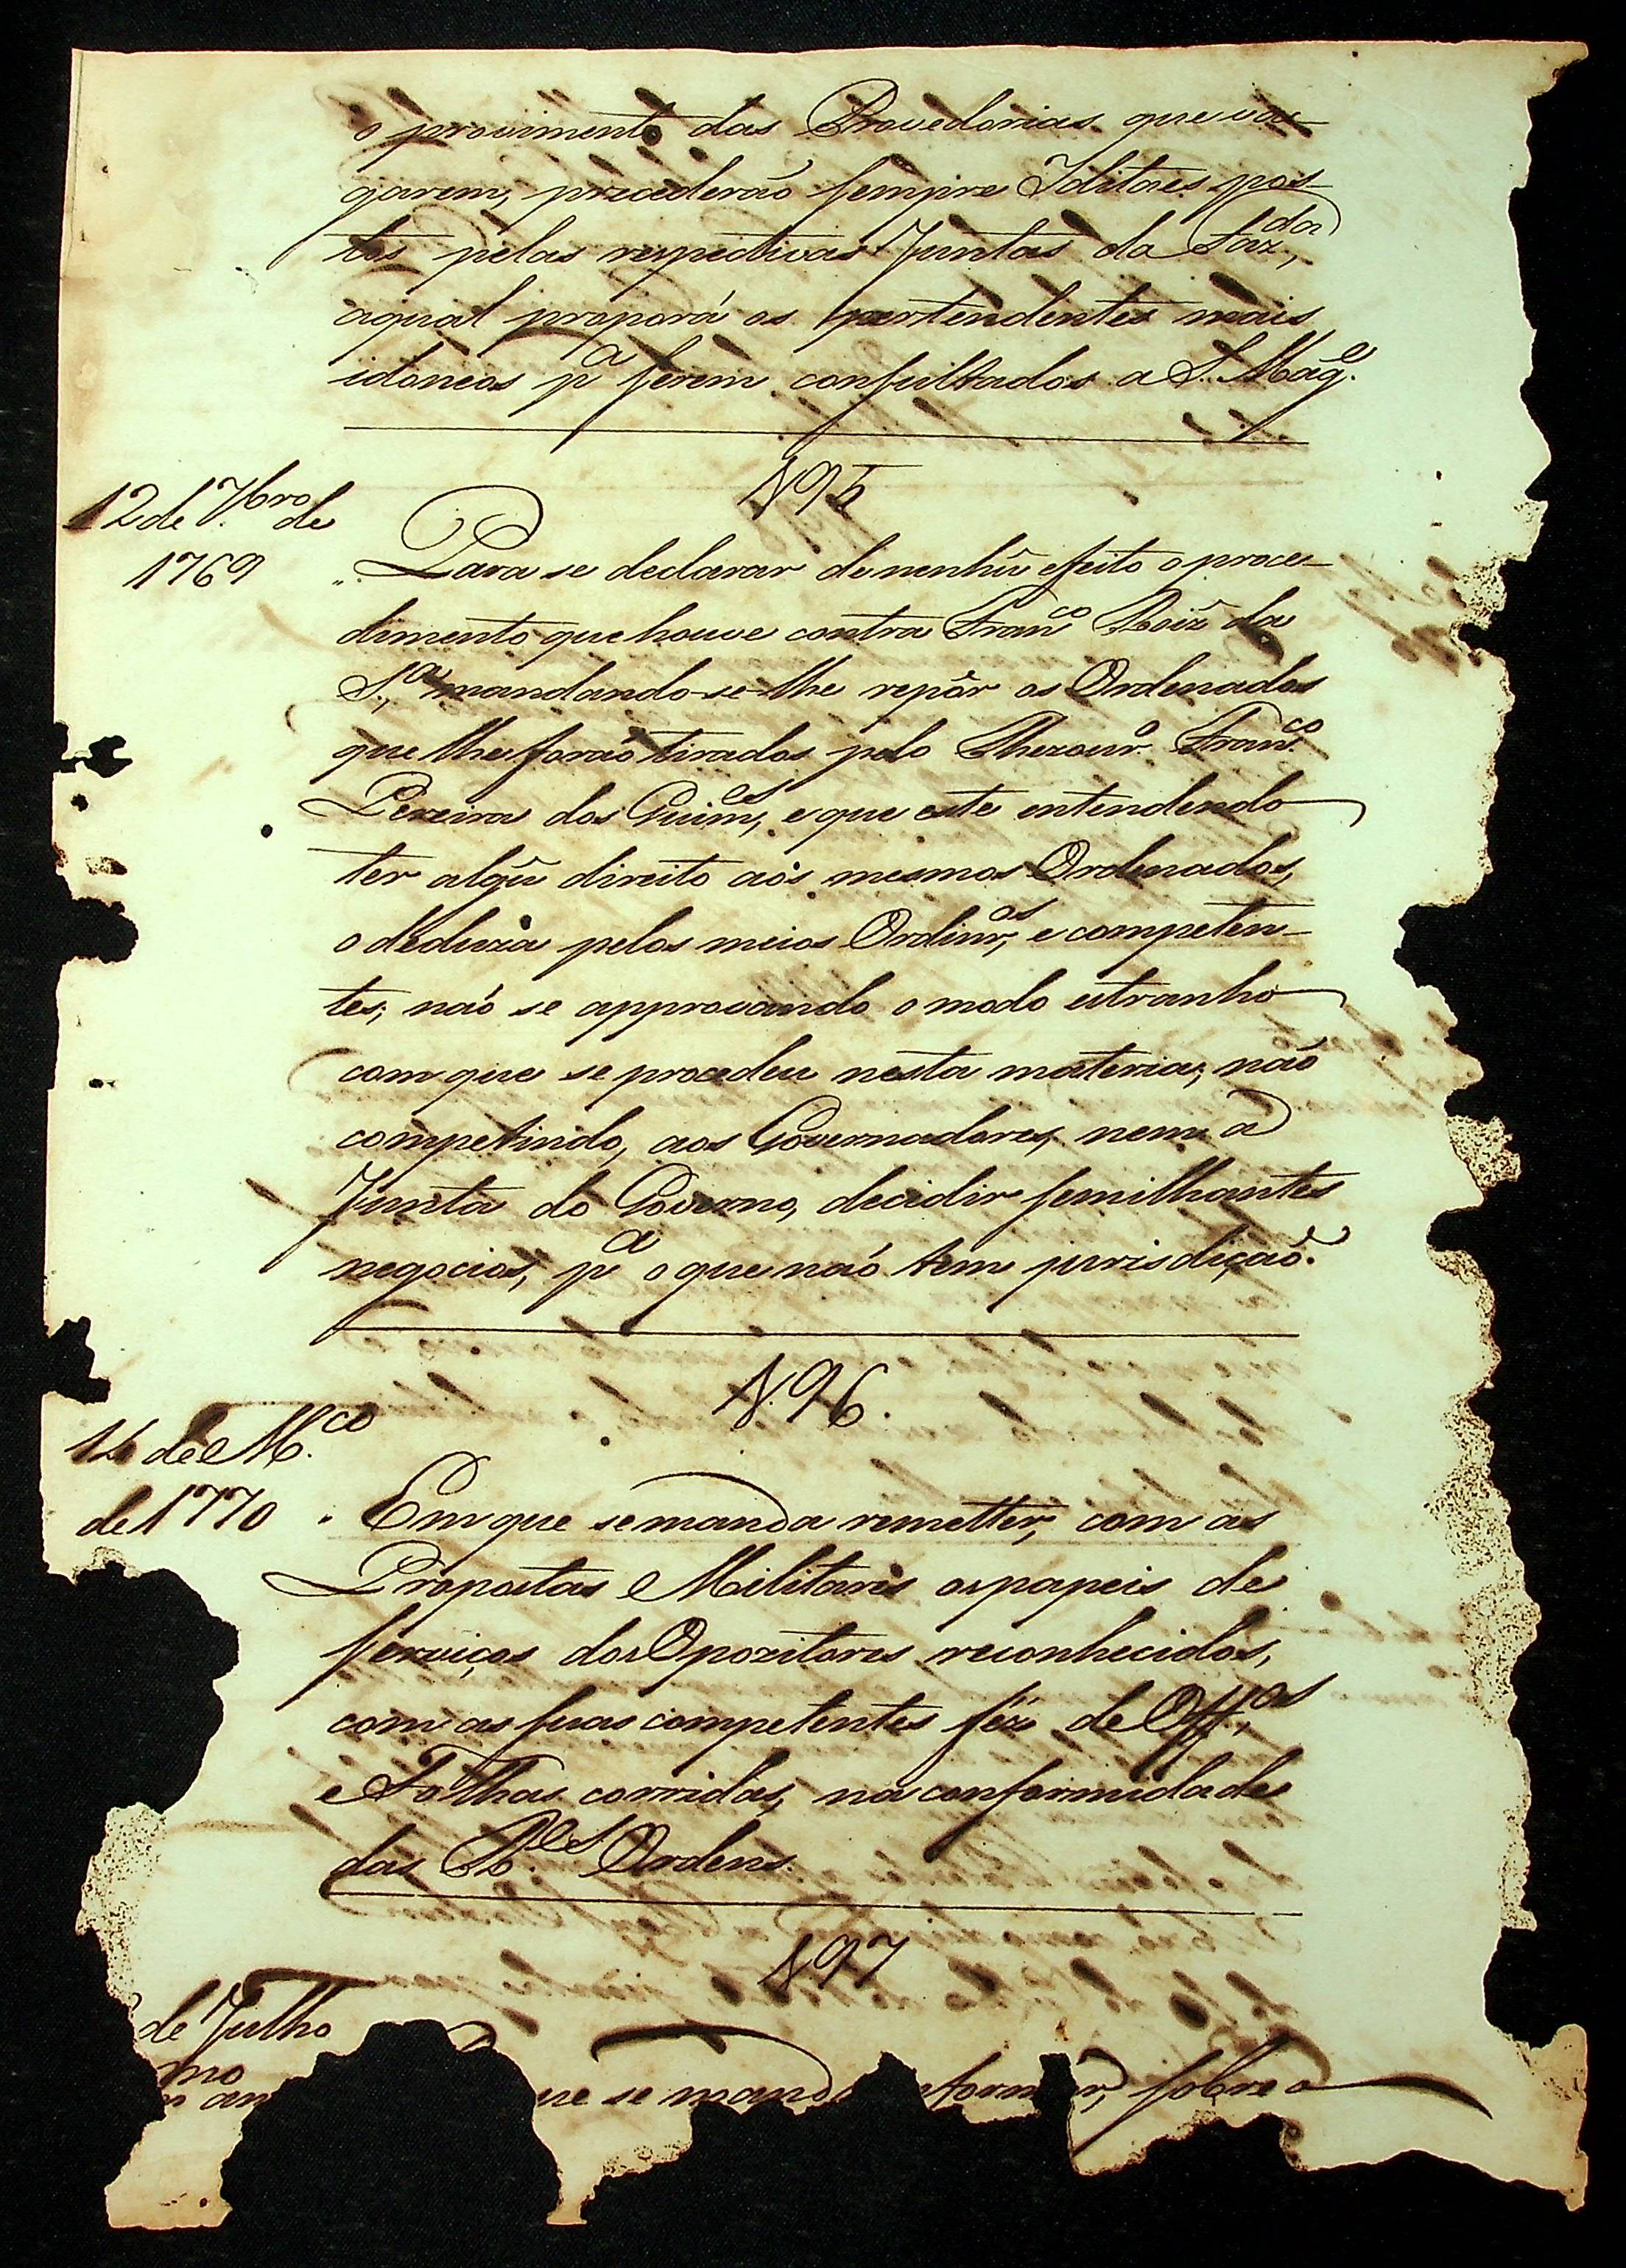 o provimento das Provedorias que va-
garem, precederáo sempre Iditaes pos-
tos pelas respectivas Juntas da Faz.da,
aqual proporá os pertendentes mais
idoneos pa serem consultados a S. Mag.e
N95
12 de 7.bro de
1769
Para se declarar de nenhũ efeito o proce-
dimento que houve contra Franco Roiz da
S.a, mandando-se-lhe repôr os Ordenados
que lhe foraõ tirados pelo Thezour.o Franco
Pereira dos Guim.es, e que este entendendo
ter algũ direito aos mesmos Ordenados,
o deduzia pelos meios Ordinr.os, e competen-
tes; naó se approvando o modo estranho
com que se procedeu nesta materia; naõ
competindo, aos Governadores, nem a
Junta do Governo, decidir semilhantes
negocios, pa o que naó tem jurisdiçaõ.
N.96.
de M.ço
de 1770
Em que se manda remetter, com as
Propostas Militares os papeis de
serviços dos Opozitores reconhecidos,
com as suas competentes féz de Off.os
e Folhas corridas, na conformidade
das R.es Ordens.
N97
de Julho
mo
an
ue se manda nformar, sobre a